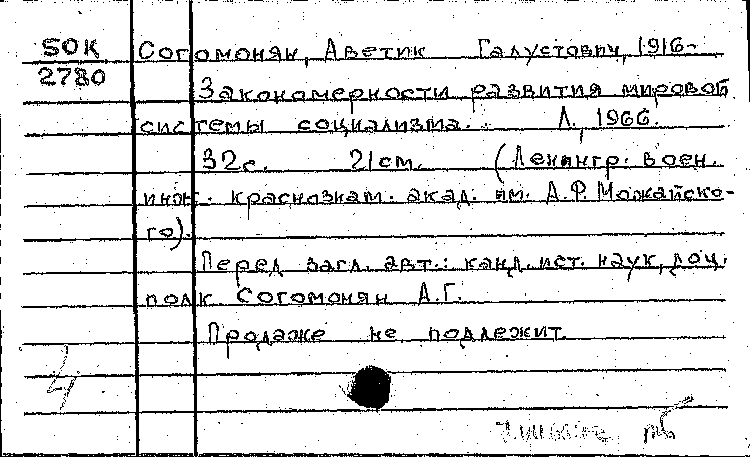 50К Согомонян, Аветик Галустович, 1916-
2780
Закономерности развития мировой
системы социализма. Л., 1966.
32с. 21см. (Ленингр. воен.
инж. краснознам. акад. им. А.Ф. Можайско-
го).
Перед загл. авт.: канд. ист. наук, доц.
полк Согомонян А.Г.
Продаже не подлежит.
4